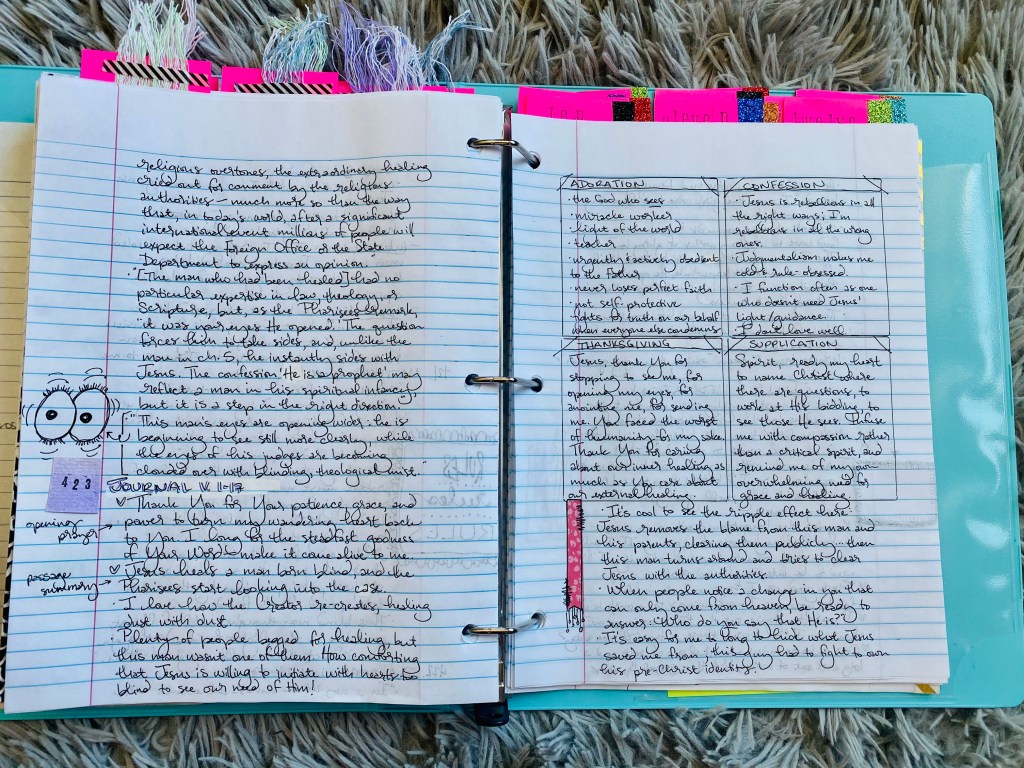 religious overtones, the extraordinary healing
cried out for comment by the religious
authorities – much more so than the way
that, in today's world, after a significant
international event millions of people will
expect the Foreign Office or the State
Department to express an opinion."
· "[The man who had been healed] had no
particular expertise in law, theology, or
Scripture, but, as the Pharisees remark,
'it was your eyes He opened.' The question
forces him to take sides, and, unlike the
man in ch. 5, he instantly sides with
Jesus. The confession 'He is a prophet' may
reflect a man in his spiritual infancy,
but it is a step in the right direction."
· "This man's eyes are opening wider: he is
beginning to see still more clearly, while
the eyes of his judges are becoming
clouded over with blinding theological mist."
423
JOURNAL V. 1-17
opening prayer
Thank You for Your patience, grace, and
power to turn my wandering heart back
to You. I long for the steadfast goodness
of Your Word – make it come alive to me.
passage summary
Jesus heals a man born blind, and the
Pharisees start looking into the case.
· I love how the Creator re-creates, healing
dust with dust.
· Plenty of people begged for healing, but
this man wasn't one of them. How comforting
that Jesus is willing to initiate with hearts
blind to see our need of Him!
ten
eleven
twelve
ADORATION
· the God who sees
· miracle worker
· Light of the world
· teacher
· urgently & actively obedient
to the Father
· never loses perfect faith
· not self-protective
· fights for truth on our behalf
when everyone else condemns
CONFESSION
· Jesus is rebellious in all
the right ways; I'm
rebellious in all the wrong
ones.
· Judgmentalism makes me
cold & rule-obsessed.
· I function often as one
who doesn't need Jesus'
light/guidance.
· I don't love well.
THANKSGIVING
Jesus, thank You for
stopping to see me, for
opening my eyes, for
anointing me, for sending
me. You faced the worst
of humanity for my sake.
Thank You for caring
about our inner healing as
much as You care about
our external healing.
SUPPLICATION
Spirit, ready my heart
to name Christ where
there are questions, to
work at His bidding, to
see those He sees. Infuse
me with compassion rather
than a critical spirit, and
remind me of my own
overwhelming need for
grace and healing.
· It's cool to see the ripple effect here:
Jesus removes the blame from this man and
his parents, clearing them publicly – then
this man turns around and tries to clear
Jesus with the authorities.
· When people notice a change in you that
can only come from heaven, be ready to
answer: "Who do you say that He is?"
· It's easy for me to long to hide what Jesus
saved me from; this guy had to fight to own
his pre-Christ identity.